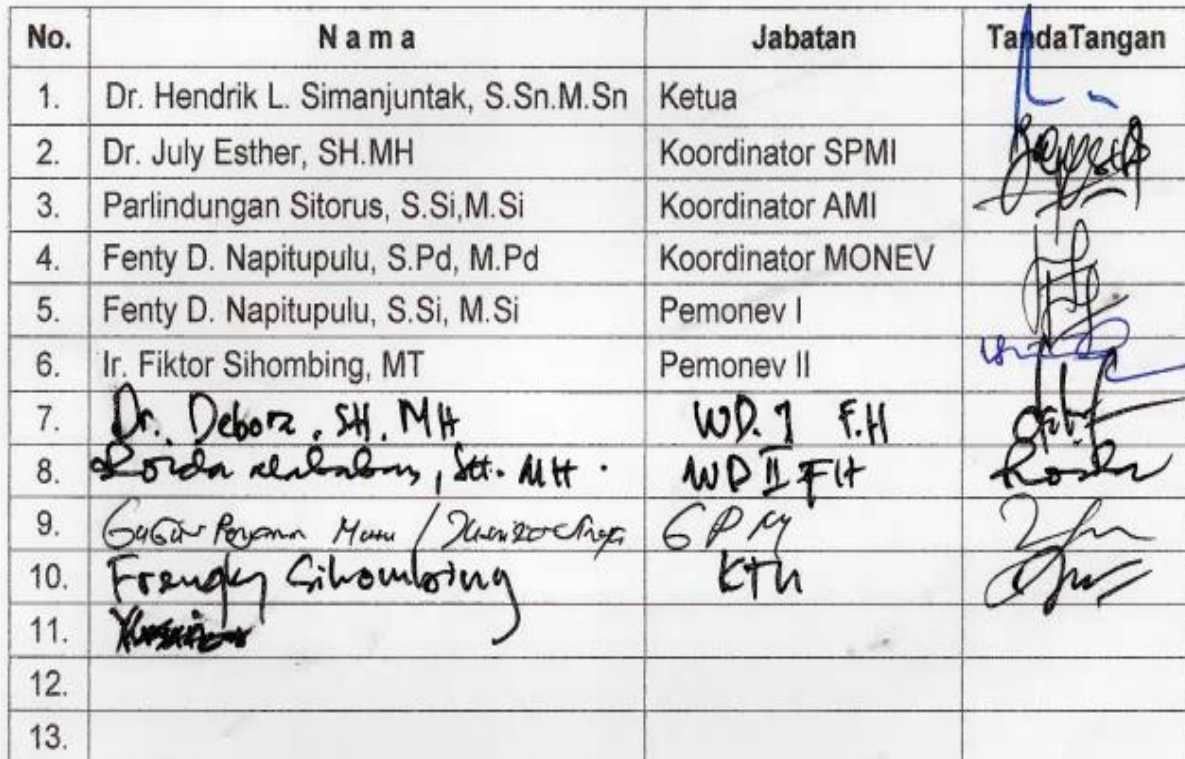 No. N a m a Jabatan TandaTangan
1. Dr. Hendrik L. Simanjuntak, S.Sn.M.Sn Ketua
2. Dr. July Esther, SH.MH Koordinator SPMI
3. Parlindungan Sitorus, S.Si,M.Si Koordinator AMI
4. Fenty D. Napitupulu, S.Pd, M.Pd Koordinator MONEV
5. Fenty D. Napitupulu, S.Si, M.Si Pemonev I
6. Ir. Fiktor Sihombing, MT Pemonev II
7. Dr. Debora, SH. MH WD. I F.H
8. MH. WD II FH
9. GPM
10. Frengky Sihombing KTU
11.
12.
13.